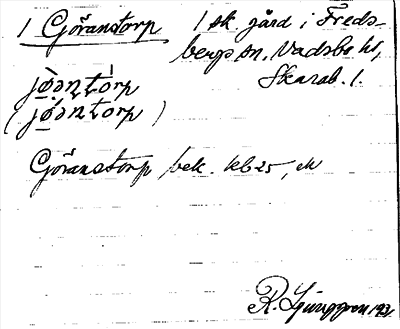 1 Göranstorp 1 sk gård i Freds-
bergs sn, Vadsbo hd,
Skarab. l.
jø̀ənto̊rp
(jø̀ənto̊rp)
Göranstorp bek. kb25, M
R. Ljunggren 1931